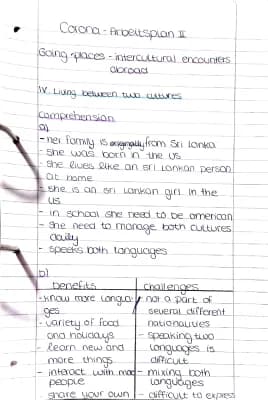 Corona-Arbeitsplan II
Going places - intercultural encounters
abroad
IV. Living between two cultures
Comprehension
a)
- her family is originally from Sri Lanka
- she was born in the US
- she lives like an Sri Lankan person
at home
- she is an Sri Lankan girl in the
US
- in school she need to be american
- she need to manage both cultures
daily
- speeks both languages
b)
benefits challenges
- know more langua- - not a part of
ges several different
- variety of food nationalities
and holidays - speaking two
- learn new and languages is
more things difficult
- interact with more - mixing both
people languages
- share your own - difficult to express